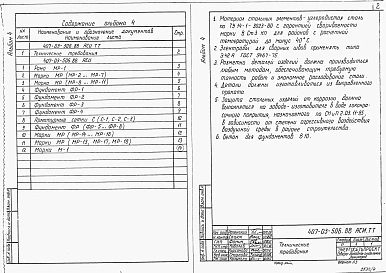 Содержание альбома 4
Альбом 4
№№ лист
Наименование и обозначение документов
Наименование листа
Стр.
407-03-506.88 АСИ.ТТ
1 Технические требования 2
407-03-506.88 АСИ
1 Рама МР-1 3
2 Марки МР (МР-2 ... МР-7) 4
3 Марки МР (МР-8 ... МР-11) 5
4 Фундамент ФР-1 6
5 Фундамент ФР-2 7
6 Фундамент ФР-3 8
7 Фундамент ФР-4 9
8 Арматурные сетки С (С-1, С-2, С-3) 10
9 Фундаменты ФР (ФР-5... ФР-8) 11
10 Марки МР (МР-14 ... МР-16) 12
11 Марки МР (МР-13, МР-17, МР-18) 13
12 Марка М-1
Альбом 4
2
1. Материал стальных элементов - углеродистая сталь
по ТУ 14-1-3023-80 с гарантией свариваемости
марки В Ст3 для районов с расчетной
температурой до минус 40°С.
2. Электроды для сварных швов применять типа
Э42А ГОСТ 9467-75
3. Разметка деталей изделий должна производиться
любым методом, обеспечивающим требуемую
точность работ и экономное расходование стали
4. Детали должны изготавливаться из выправленного
проката.
5. Защита стальных изделий от коррозии должна
выполняться на заводе-изготовителе в виде
покрытия, назначаемого по СНиП 2.03.11-85,
в зависимости от степени агрессивного воздействия
воздушной среды в районе строительства
6. Бетон для фундаментов В 10.
407-03-506.88 АСИ.ТТ
Технические
требования